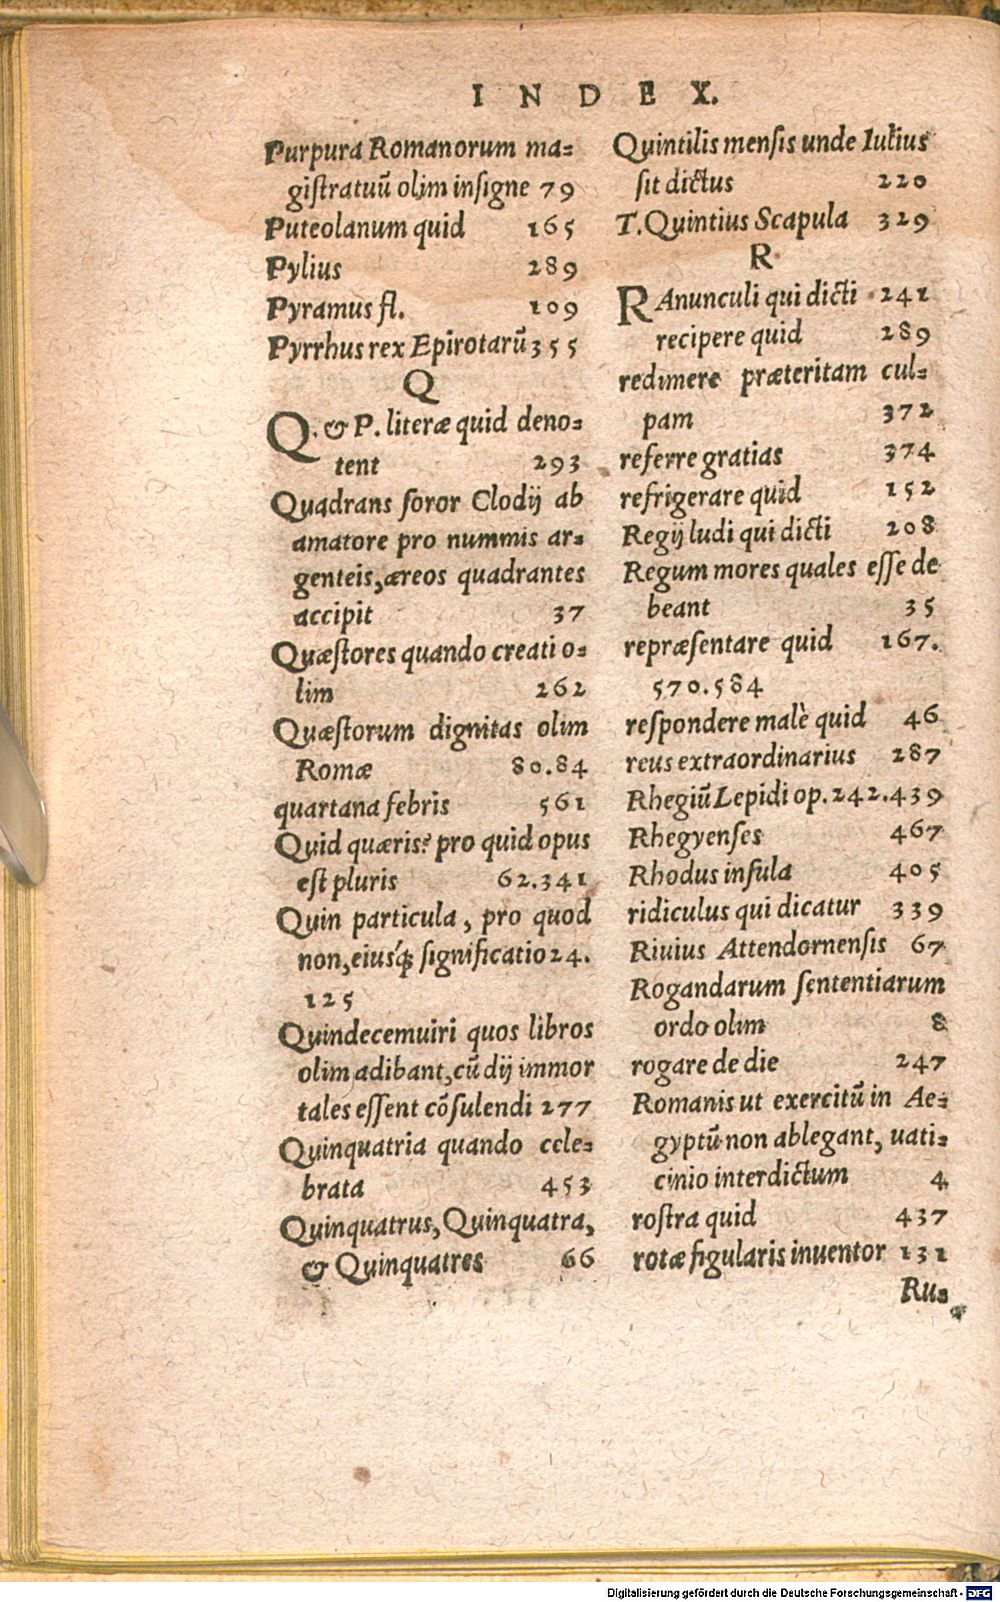 INDEX.
Purpura Romanorum ma=
giſtratuū olim inſigne 79
Puteolanum quid 165
Pylius 289
Pyramus fl. 109
Pyrrhus rex Epirotarū 355
Q
Q. & P. literæ quid deno=
tent 293
Quadrans ſoror Clodij ab
amatore pro nummis ar=
genteis, æreos quadrantes
accipit 37
Quæſtores quando creati o=
lim 262
Quæſtorum dignitas olim
Romæ 80.84
quartana febris 561
Quid quæris? pro quid opus
eſt pluris 62.341
Quin particula, pro quod
non, eiusq́; ſignificatio 24.
125
Quindecemuiri quos libros
olim adibant, cū dij immor
tales eſſent cōſulendi 277
Quinquatria quando cele=
brata 453
Quinquatrus, Quinquatra,
& Quinquatres 66
Quintilis menſis unde Iulius
ſit dictus 220
T. Quintius Scapula 329
R
RAnunculi qui dicti 241
recipere quid 289
redimere præteritam cul=
pam 372
referre gratias 374
refrigerare quid 152
Regij ludi qui dicti 208
Regum mores quales eſſe de
beant 35
repræſentare quid 167.
570.584
reſpondere malè quid 46
reus extraordinarius 287
Rhegiū Lepidi op. 242.439
Rhegyenſes 467
Rhodus inſula 405
ridiculus qui dicatur 339
Riuius Attendornenſis 67
Rogandarum ſententiarum
ordo olim 8
rogare de die 247
Romanis ut exercitū in Ae=
gyptū non ablegant, uati=
cinio interdictum 4
roſtra quid 437
rotæ figularis inuentor 131
Ru=
Digitalisierung gefördert durch die Deutsche Forschungsgemeinschaft - DFG